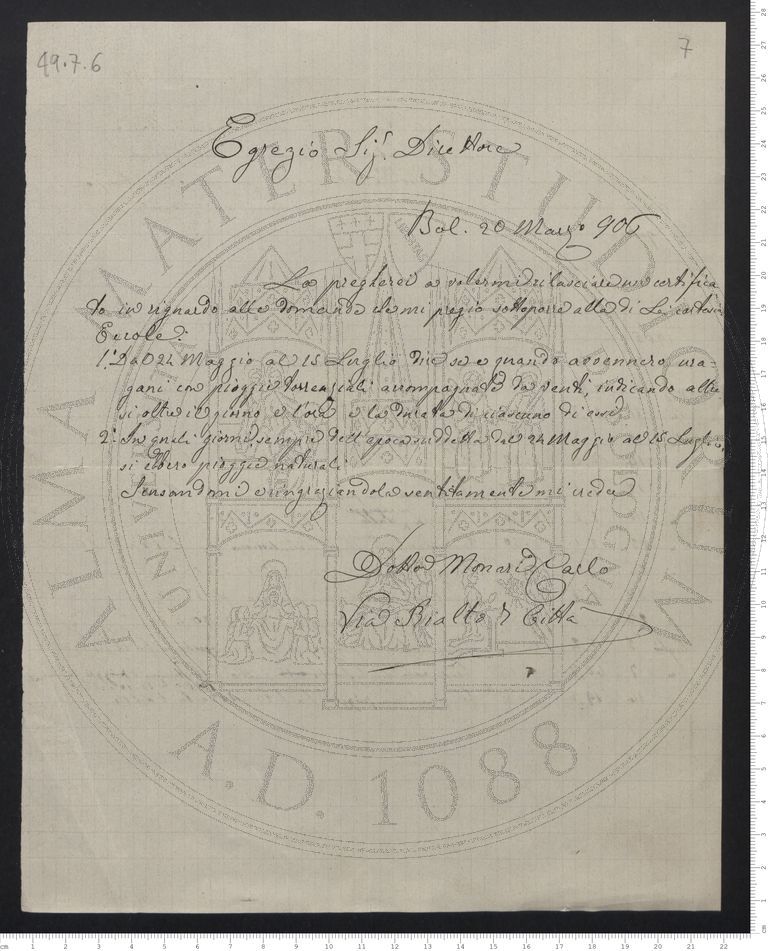 49.7.6
7
Egregio Sigʳ. Direttore
Bol. 20 Marzo 906
La pregherei a volermi rilasciare un certifica
to in riguardo alle domande che mi pregio sottoporre alla di Lei cortesia
1.° Dal 24 Maggio al 15 Luglio dire se e quando avvennero ura-
gani con pioggie torrenziali accompagnate da venti, indicando
si oltre il giorno e l'ora e la durata di ciascuno di essi
2.° In quali giorni, sempre dell'epoca suddetta dal 24 Maggio al 15 Luglio,
si ebbero pioggie naturali
Scusandomi e ringraziandola sentitamente mi creda
Dottor Monari Carlo
Via Rialto Città
ALMA MATER STUDIORUM
A.D. 1088